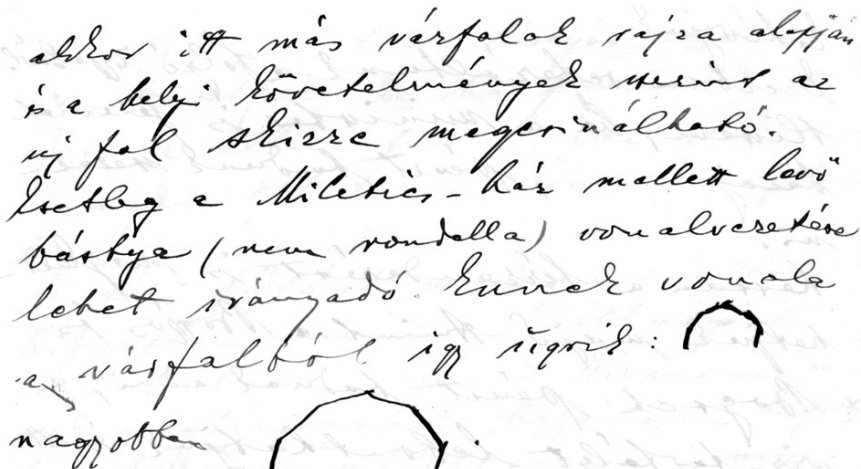 akkor itt más várfalak rajza alapján
és a helyi követelmények szerint az
új fal skizze megcsinálható.
Esetleg a Miletics-ház mellett levő
bástya (nem rondella) vonalvezetése
lehet irányadó. Ennek vonala
a várfalból így ugrik:
nagyobban